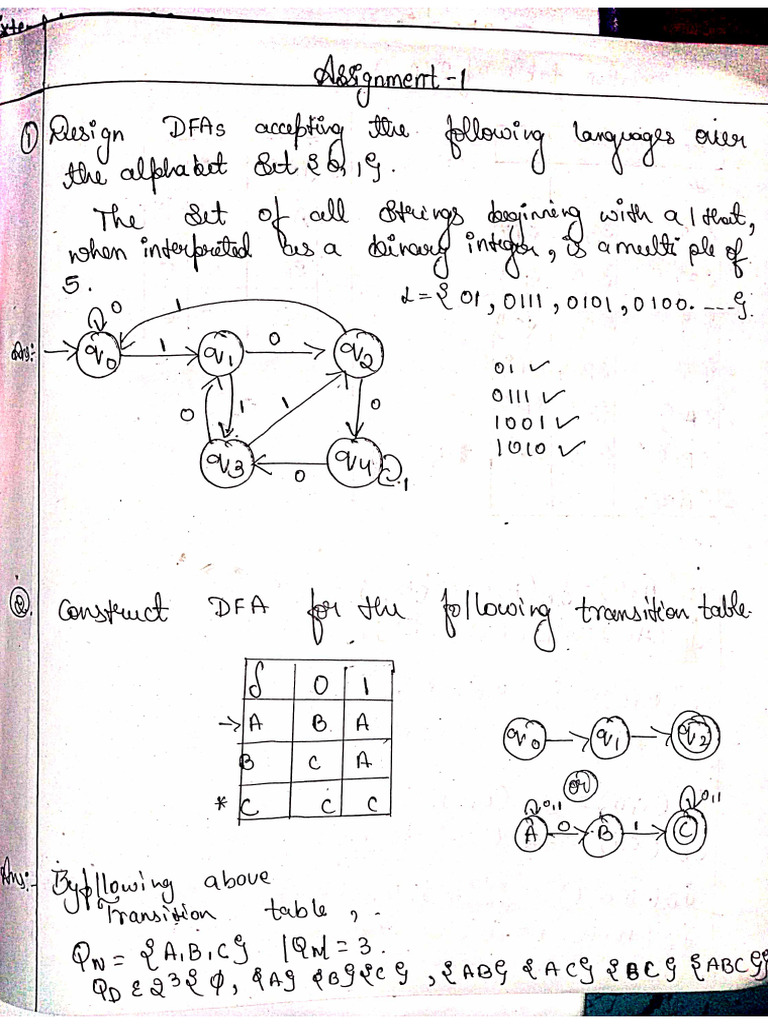 Assignment-1
① Design DFAs accepting the following languages over
the alphabet set {0,1}.
The set of all strings beginning with a 1 that,
when interpreted as a binary integer, is a multiple of
5.
L={ 01, 0111, 0101, 0100. ---}.
Ans:-
0
1
q0
1
q1
0
q2
0
1
1
0
q3
0
q4
1
01 ✓
0111 ✓
1001 ✓
1010 ✓
②. Construct DFA for the following transition table.
δ 0 1
→A B A
B C A
* C C C
q0 q1 q2
or
0,1 0,1
A 0 B 1 C
Ans:- By following above
Transition table,.
QN = {A,B,C} |QN| = 3.
QD ε 2³{ φ, {A} {B}{C}, {AB} {AC} {BC} {ABC}}